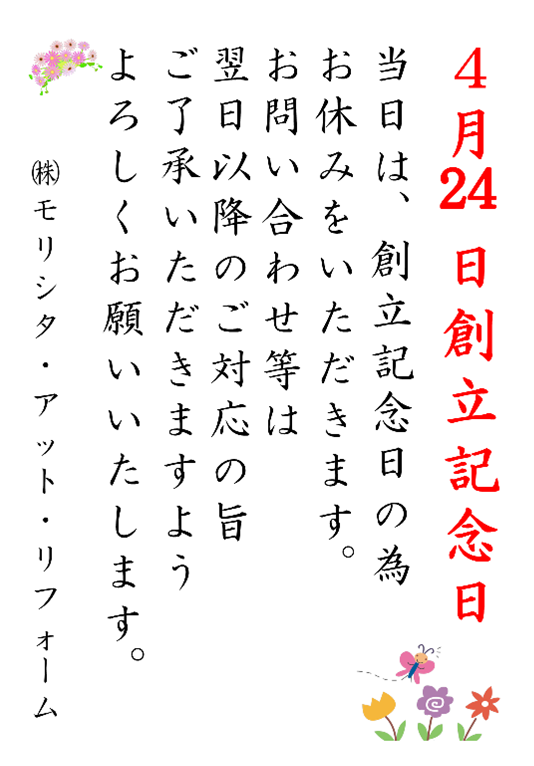 4月24日創立記念日
当日は、創立記念日の為
お休みをいただきます。
お問い合わせ等は
翌日以降のご対応の旨
ご了承いただきますよう
よろしくお願いいたします。
㈱モリシタ・アット・リフォーム